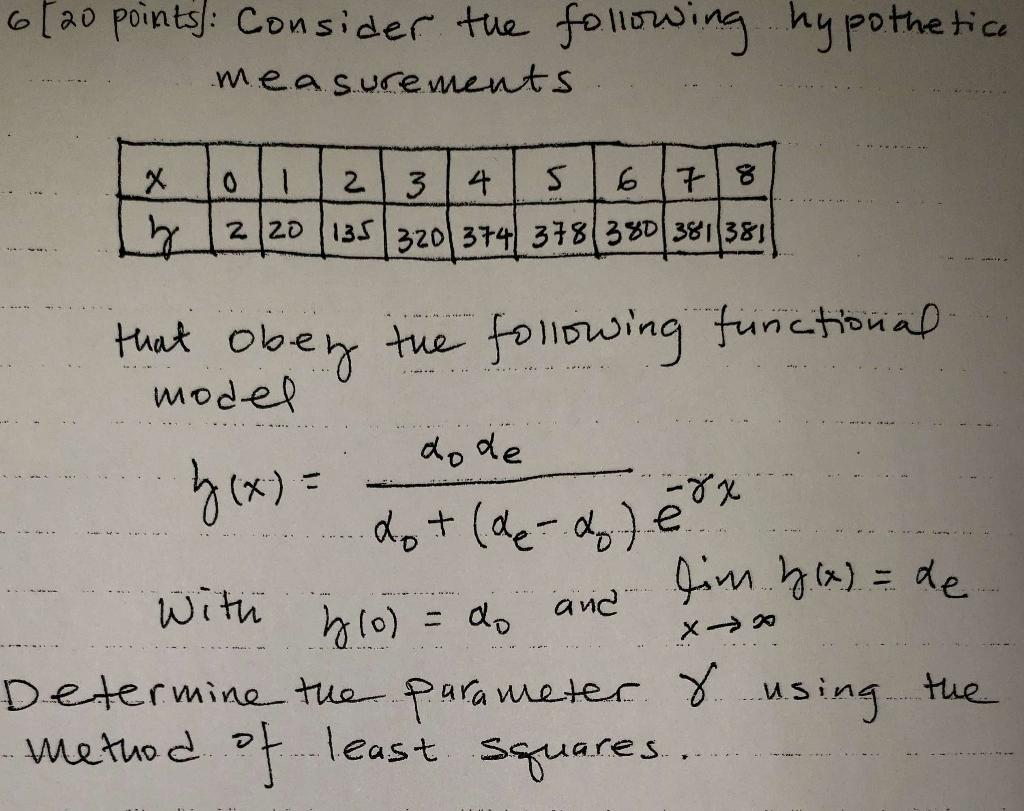 6[20 points]: Consider the following hypothetica
measurements
x 0 1 2 3 4 5 6 7 8
y 2 20 135 320 374 378 380 381 381
that obey the following functional
model
y(x) = α₀ αₑ / α₀ + (αₑ - α₀) e^-γx
with y(0) = α₀ and lim y(x) = αₑ
x→∞
Determine the parameter γ using the
method of least squares.